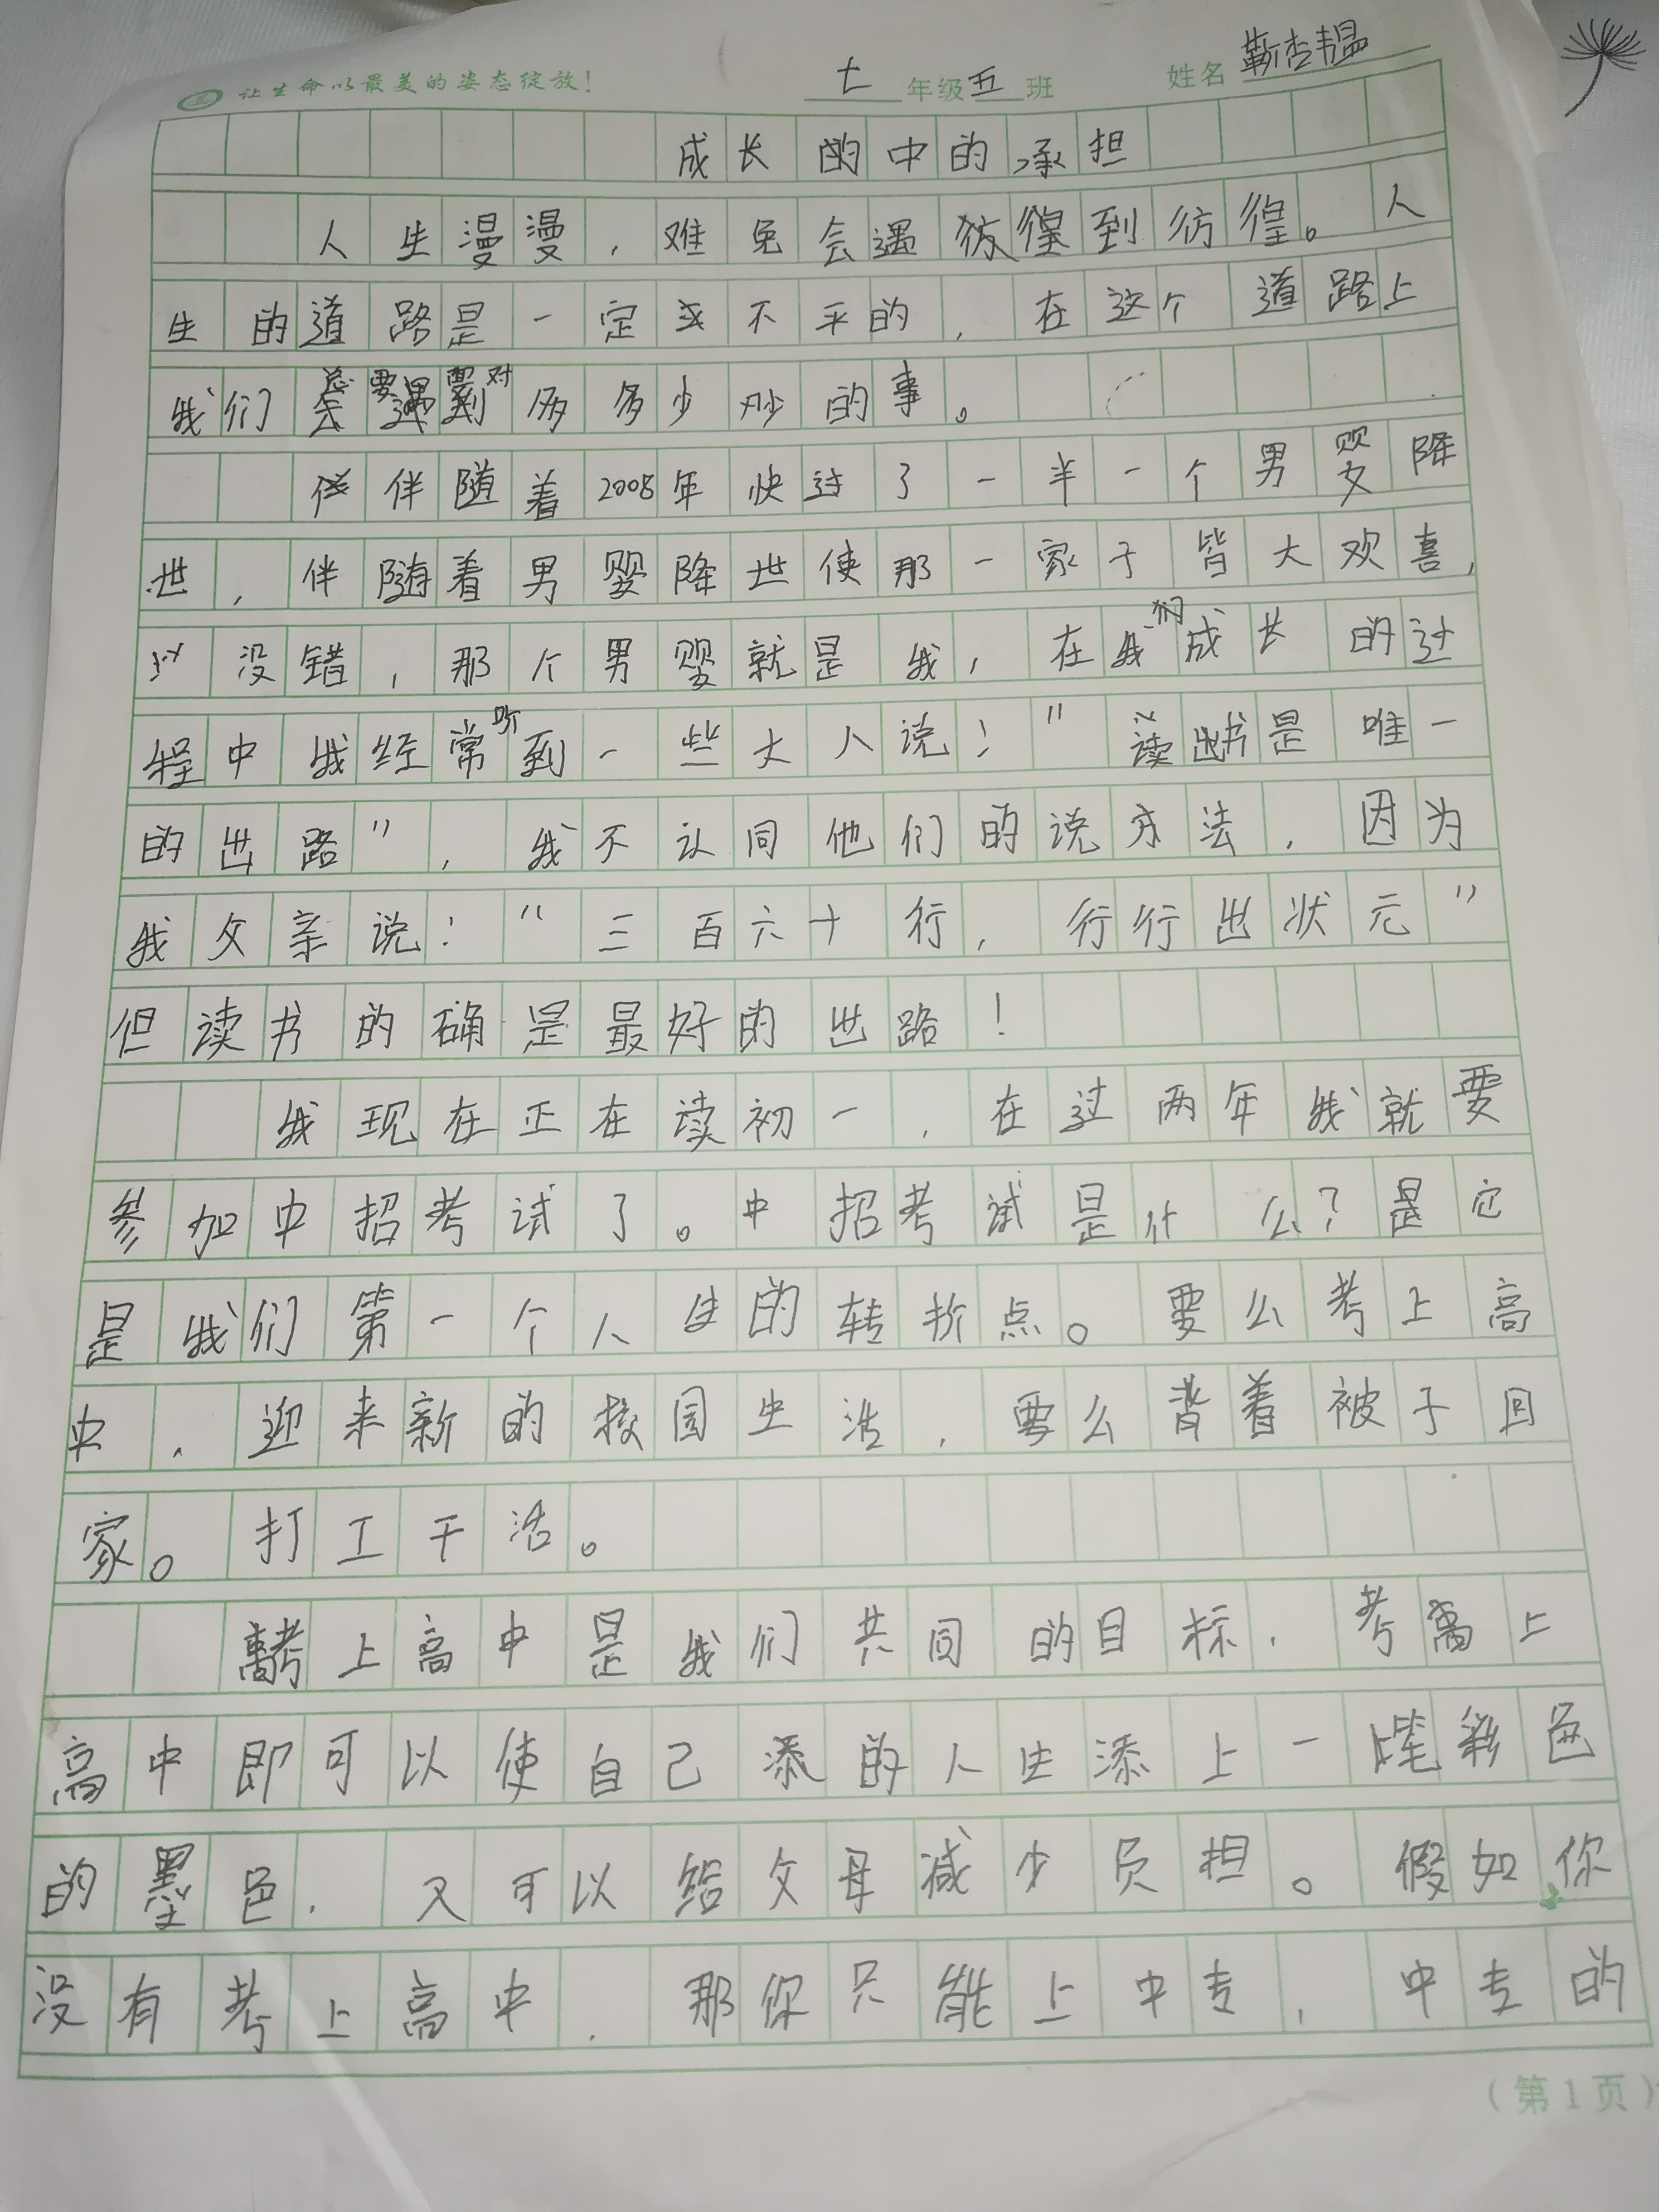 让生命以最美的姿态绽放！ 七年级五班 姓名 靳
成长的中的承担
人生漫漫，难免会遇彷徨到彷徨。人
生的道路是一定或不平的，在这个道路上
我们总要面对多多少少的事。
伴随着2008年快过了一半一个男婴降
世，伴随着男婴降世使那一家子皆大欢喜，
没错，那个男婴就是我，在我们成长的过
程中我经常听到一些大人说：“读书是唯一
的出路”，我不认同他们的说方法，因为
我父亲说：“三百六十行，行行出状元”
但读书的确是最好的出路！
我现在正在读初一，在过两年我就要
参加中招考试了。中招考试是什么？是它
是我们第一个人生的转折点。要么考上高
中，迎来新的校园生活，要么背着被子回
家。打工干活。
考上高中是我们共同的目标，考上
高中即可以使自己添的人生添上一笔彩色
的墨色，又可以给父母减少负担。假如你
没有考上高中，那你只能上中专，中专的
（第1页）